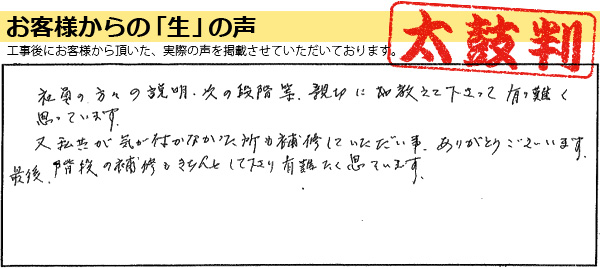 お客様からの「生」の声
太鼓判
工事後にお客様から頂いた、実際の声を掲載させていただいております。
社員の方々の説明、次の段階等、親切に教えて下さって有り難く
思っています。
又私共が気が付かなかった所も補修していただい事、ありがとうございます。
最後、階段の補修もきちんとして下さり有難たく思ています。